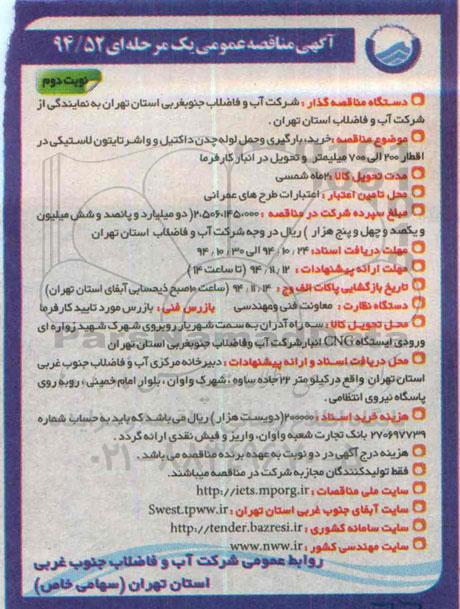 آگهی مناقصه عمومی یک مرحله ای ۹۴/۵۲
نوبت دوم
دستگاه مناقصه گذار : شرکت آب و فاضلاب جنوبغربی استان تهران به نمایندگی از
شرکت آب و فاضلاب استان تهران .
موضوع مناقصه : خرید، بارگیری وحمل لوله چدن داکتیل و واشر تایتون لاستیکی در
اقطار ۲۰۰ الی ۷۰۰ میلیمتر و تحویل در انبار کارفرما
مدت تحویل کالا : ۲ماه شمسی
محل تامین اعتبار : اعتبارات طرح های عمرانی
مبلغ سپرده شرکت در مناقصه : ۲،۵۰۶،۱۴۵،۰۰۰( دو میلیارد و پانصد و شش میلیون
و یکصد و چهل و پنج هزار ) ریال در وجه شرکت آب و فاضلاب استان تهران
مهلت دریافت اسناد: ۹۴/۱۰/۲۴ الی ۹۴/۱۰/۳۰
مهلت ارائه پیشنهادات : ۹۴/۱۱/۱۲ (تا ساعت ۱۴)
تاریخ بازگشایی پاکات الف و ج : ۹۴/۱۱/۱۴ (ساعت ۱۰صبح ذیحسابی آبفای استان تهران)
دستگاه نظارت : معاونت فنی ومهندسی بازرس فنی : بازرس مورد تایید کارفرما
محل تحویل کالا : سه راه آدران به سمت شهریار روبروی شهرک شهید زواره ای
ورودی ایستگاه CNG انبار شرکت آب وفاضلاب جنوبغربی استان تهران
محل دریافت اسناد و ارائه پیشنهادات : دبیرخانه مرکزی آب و فاضلاب جنوب غربی
استان تهران واقع در کیلو متر ۲۲ جاده ساوه ، شهرک واوان ، بلوار امام خمینی ، روبه روی
پاسگاه نیروی انتظامی .
هزینه خرید اسناد : ۲۰۰۰۰۰(دویست هزار ) ریال می باشد که باید به حساب شماره
۲۷۰۶۹۷۷۳۹ بانک تجارت شعبه واوان، واریز و فیش نقدی ارائه گردد .
هزینه درج آگهی در دو نوبت به عهده برنده مناقصه می باشد .
فقط تولیدکنندگان مجاز به شرکت در مناقصه میباشند.
سایت ملی مناقصات : http://iets.mporg.ir
سایت آبفای جنوب غربی استان تهران : Swest.tpww.ir
سایت سامانه کشوری : http://tender.bazresi.ir
سایت مهندسی کشور : www.nww.ir
روابط عمومی شرکت آب و فاضلاب جنوب غربی
استان تهران (سهامی خاص)